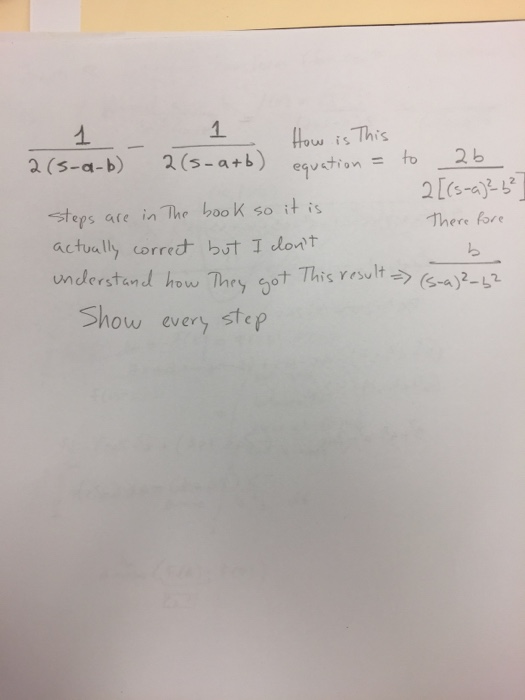 1/2(s-a-b) - 1/2(s-a+b) How is This equation = to 2b/2[(s-a)²-b²]
steps are in The book so it is
There fore
actually correct but I don't
understand how They got This result => b/(s-a)²-b²
Show every step